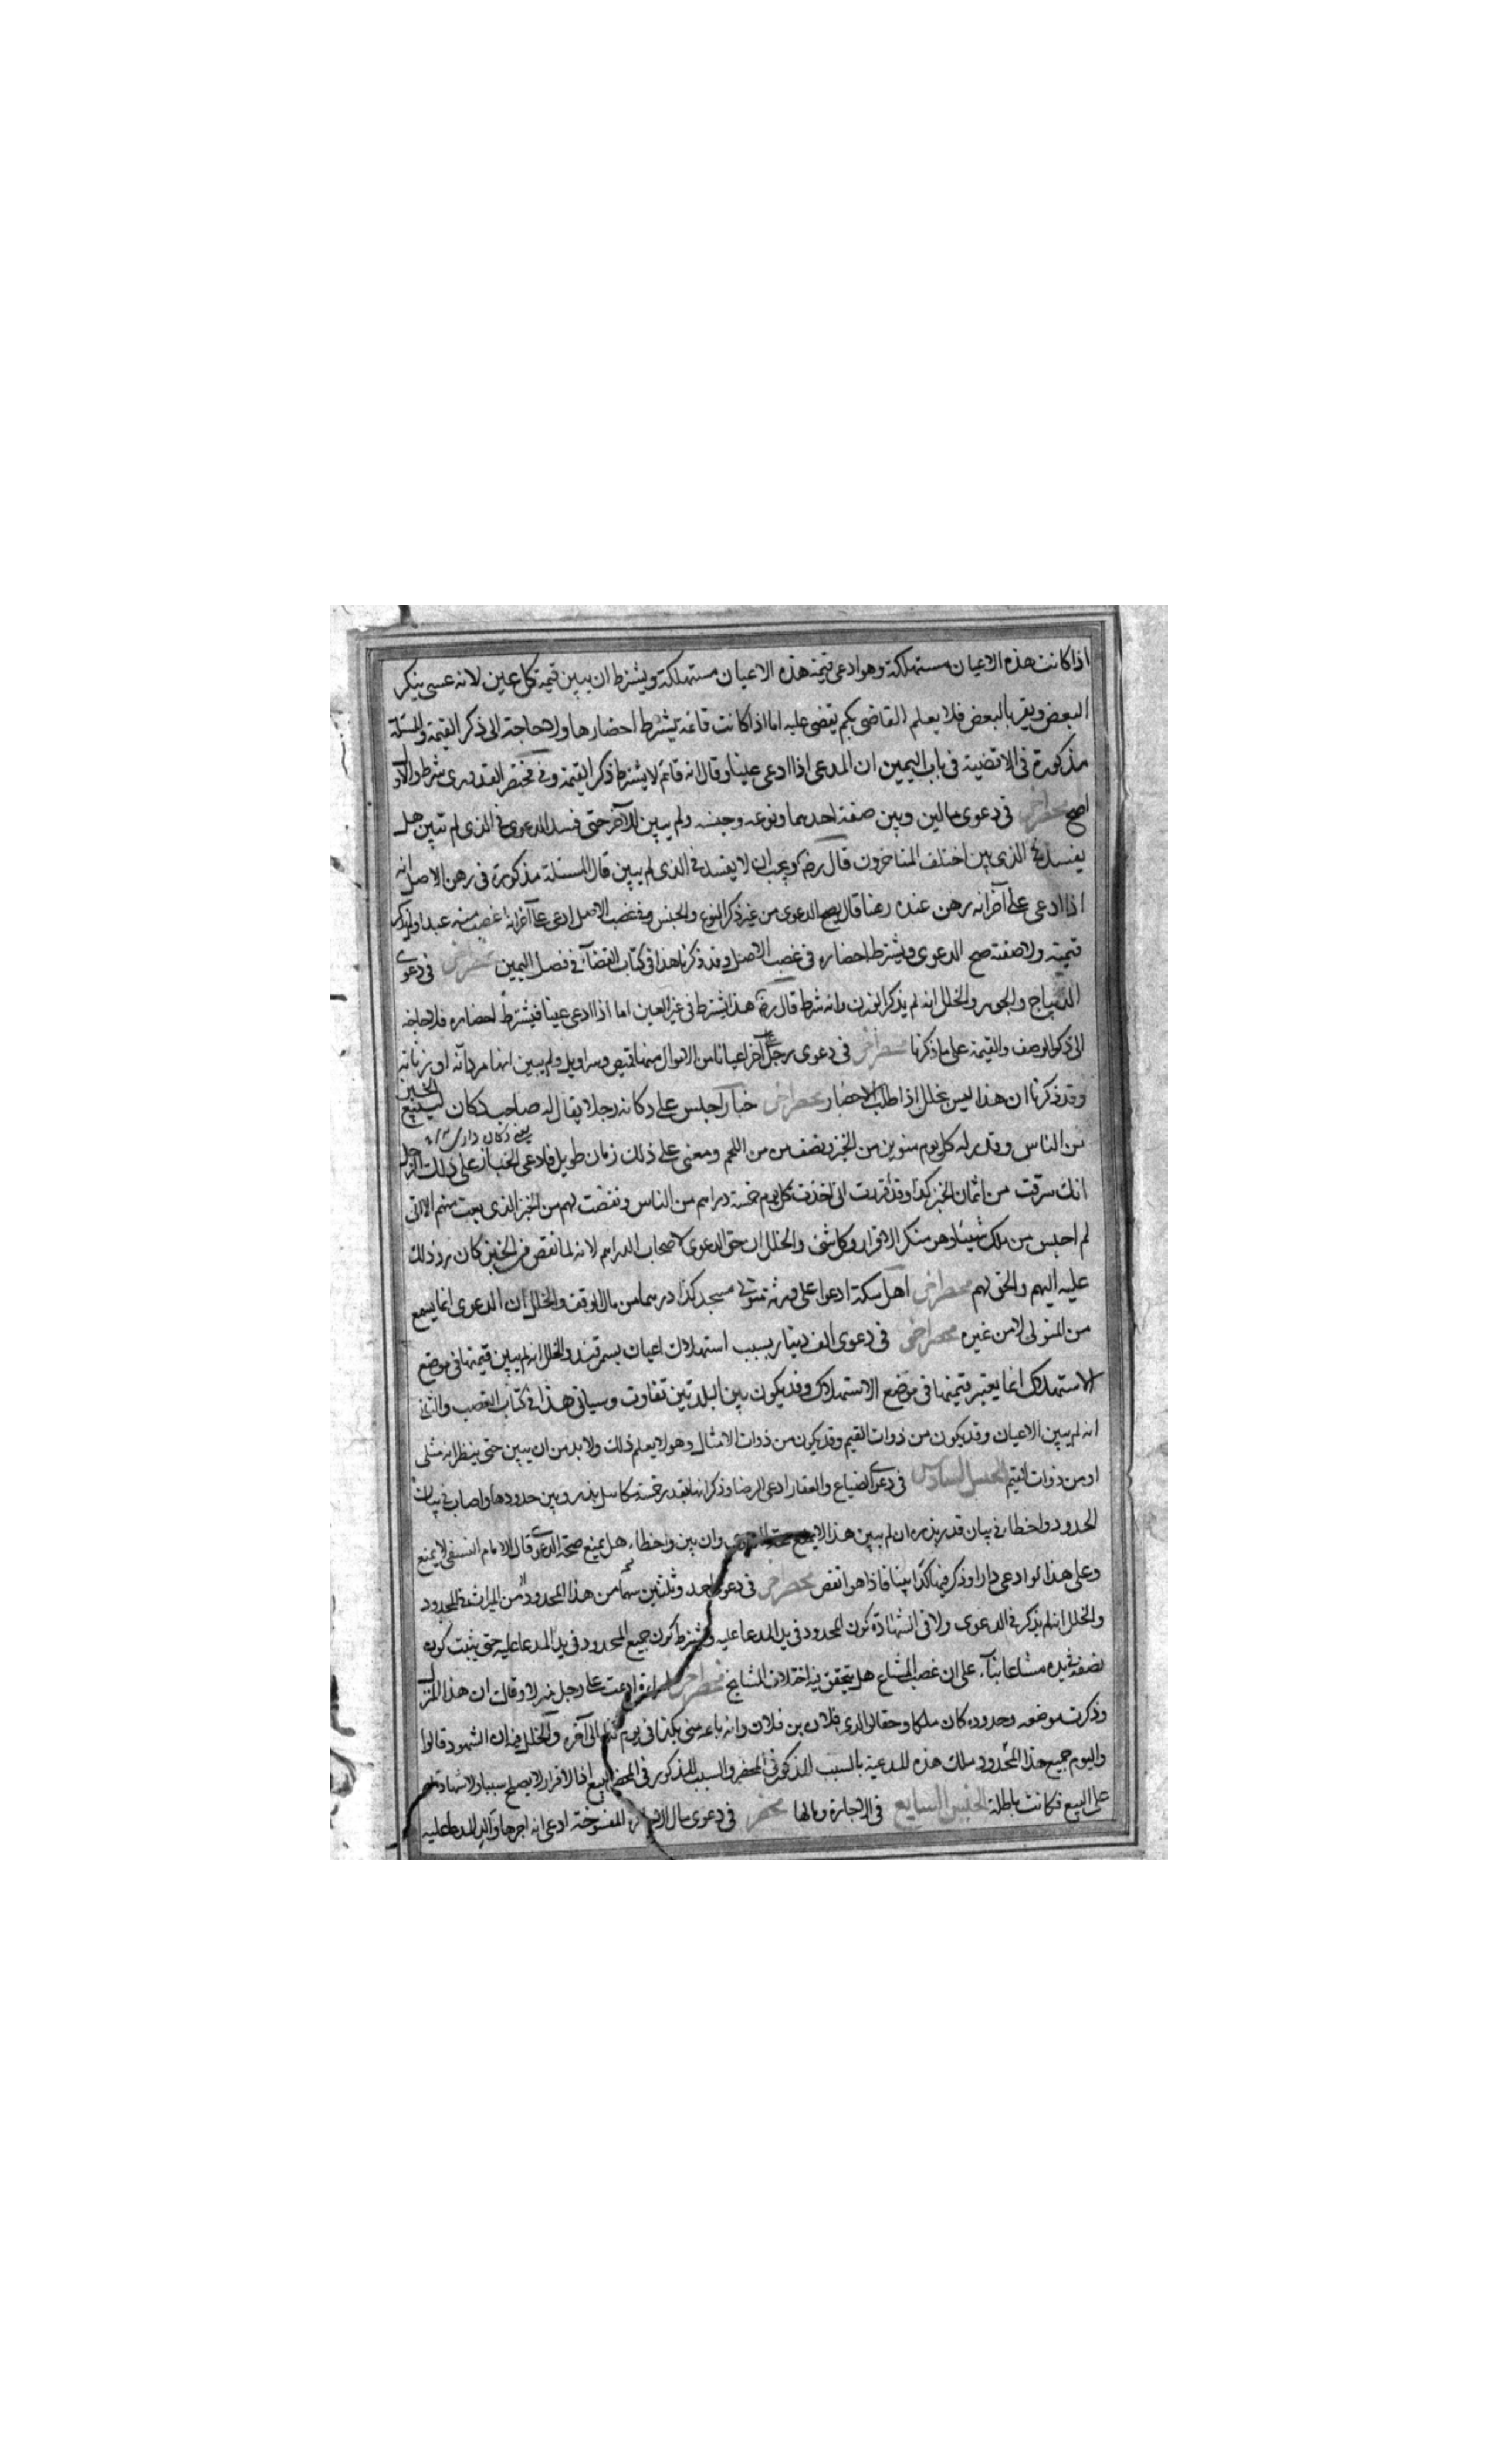 اذا كانت هذه الاعيان مستهلكة وهو ادعى قيمة هذه الاعيان مستهلكة ويشترط ان يبين قيمة كل عين لانه عسى ينكر
البعض ويقر بالبعض فلا يعلم القاضى بكم يقضى عليه اما اذا كانت قائمة يشترط احضارها ولا حاجة الى ذكر القيمة والمسئلة
مذكورة فى الاقضية فى باب اليمين ان المدعى اذا ادعى عينا وقال انه قائم لا يشترط ذكر القيمة وفى مختصر القدورى شرط والاول
اصح محضر اخر فى دعوى مالين وبين صفة احدهما ونوعه وجنسه ولم يبين للآخر حتى فسد الدعوى فى الذى لم تبين هل
يفسد فى الذى بين اختلف المتاخرون قال رضه ويجب ان لا يفسد فى الذى لم يبين قال المسئلة مذكورة فى رهن الاصل انه
اذا ادعى على آخر انه رهن عنده رهنا قال يصح الدعوى من غير ذكر النوع والجنس وفى غصب الاصل ادعى على آخر انه غصب منه عبدا ولم يذكر
قيمته ولا صفته صح الدعوى ويشترط احضاره فى غصب الاصل وقد ذكرنا هذا فى كتاب القضاء فى فصل اليمين محضر اخر فى دعوى
الديباج والجوهر والخلل انه لم يذكر الوزن وانه شرط قال رضه هذا يشترط فى غير العين اما اذا ادعى عينا فيشترط احضاره فلا حاجة
الى ذكر الوصف والقيمة على ما ذكرنا محضر اخر فى دعوى رجل على آخر اعيانا من الاموال منها قميص وسراويل ولم يبين انها مردانه او زنانه
وقد ذكرنا ان هذا ليس بخلل اذا طلب الاحضار محضر اخر خباز اجلس على دكانه رجلا يقال له صاحب دكان ليبيع الخبز
يعنى دكان دار
من الناس وقدر له كل يوم منوين من الخبز ونصف من من اللحم ومضى على ذلك زمان طويل فادعى الخباز على ذلك الرجل
انك سرقت من اثمان الخبز كذا وقد اقررت انى اخذت كل يوم خمسة دراهم من الناس ونقصت لهم من الخبز الذى بعت منهم الا انى
لم احبس من ملك شيئا وهو منكر الاقرار والخلل ان حق الدعوى لاصحاب الدراهم لانه لما نقص من الخبز كان رد ذلك
عليه اليهم والحق لهم محضر اخر اهل سكة ادعوا على ورثة متولى مسجد كذا درهما من مال الوقف والخلل ان الدعوى انما يسمع
من المتولى لا من غيره محضر اخر فى دعوى الف دينار بسبب استهلاك اعيان بسمرقند والخلل انه لم يبين قيمتها فى موضع
الاستهلاك انما يعتبر قيمتها فى موضع الاستهلاك وقد يكون بين البلدتين تفاوت وسياتى هذا فى كتاب الغصب والثانى
انه لم يبين الاعيان وقد يكون من ذوات القيم وقد يكون من ذوات الامثال وهو لا يعلم ذلك ولا بد من ان يبين حتى ينظر انه مثلى
او من ذوات القيم الجنس السادس فى دعوى الضياع والعقار ادعى ارضا وذكر انها بقدر خمسة مكاييل بذر وبين حدودها واصاب فى بيان
الحدود واخطا فى بيان قدر بذره ان لم يبين هذا لا يمنع صحة الدعوى وان بين واخطاء هل يمنع صحة الدعوى قال الامام النسفى لا يمنع
وعلى هذا لو ادعى دارا وذكر فيها كذا بيتا فاذا هو انقص محضر اخر فى دعوى احد وثلثين سهما من هذا المحدود من الميراث فى المحدود
والخلل انه لم يذكر فى الدعوى ولا فى الشهادة كون المحدود فى يد المدعا عليه ويشترط كون جميع المحدود فى يد المدعا عليه حتى يثبت كون
نصفه فى يده مشاعا بناء على ان غصب المشاع هل يتحقق فيه اختلاف المشايخ محضر اخر امراة ادعت على رجل منزلا وقالت ان هذا المنزل
وذكرت موضعه وحدوده كان ملكا وحقا لوالدى فلان بن فلان وانه باعه منى بكذا فى يوم كذا الى آخره والخلل فيه ان الشهود قالوا
واليوم جميع هذا المحدود ملك هذه المدعية بالسبب المذكور فى المحضر والسبب المذكور فى المحضر البيع اما الاقرار لا يصلح سببا ولا شهادة لهم
على البيع فكانت باطلة الجنس السابع فى الاجارة ومالها محضر فى دعوى مال الاجارة المفسوخة ادعى انه اجرها والد المدعا عليه